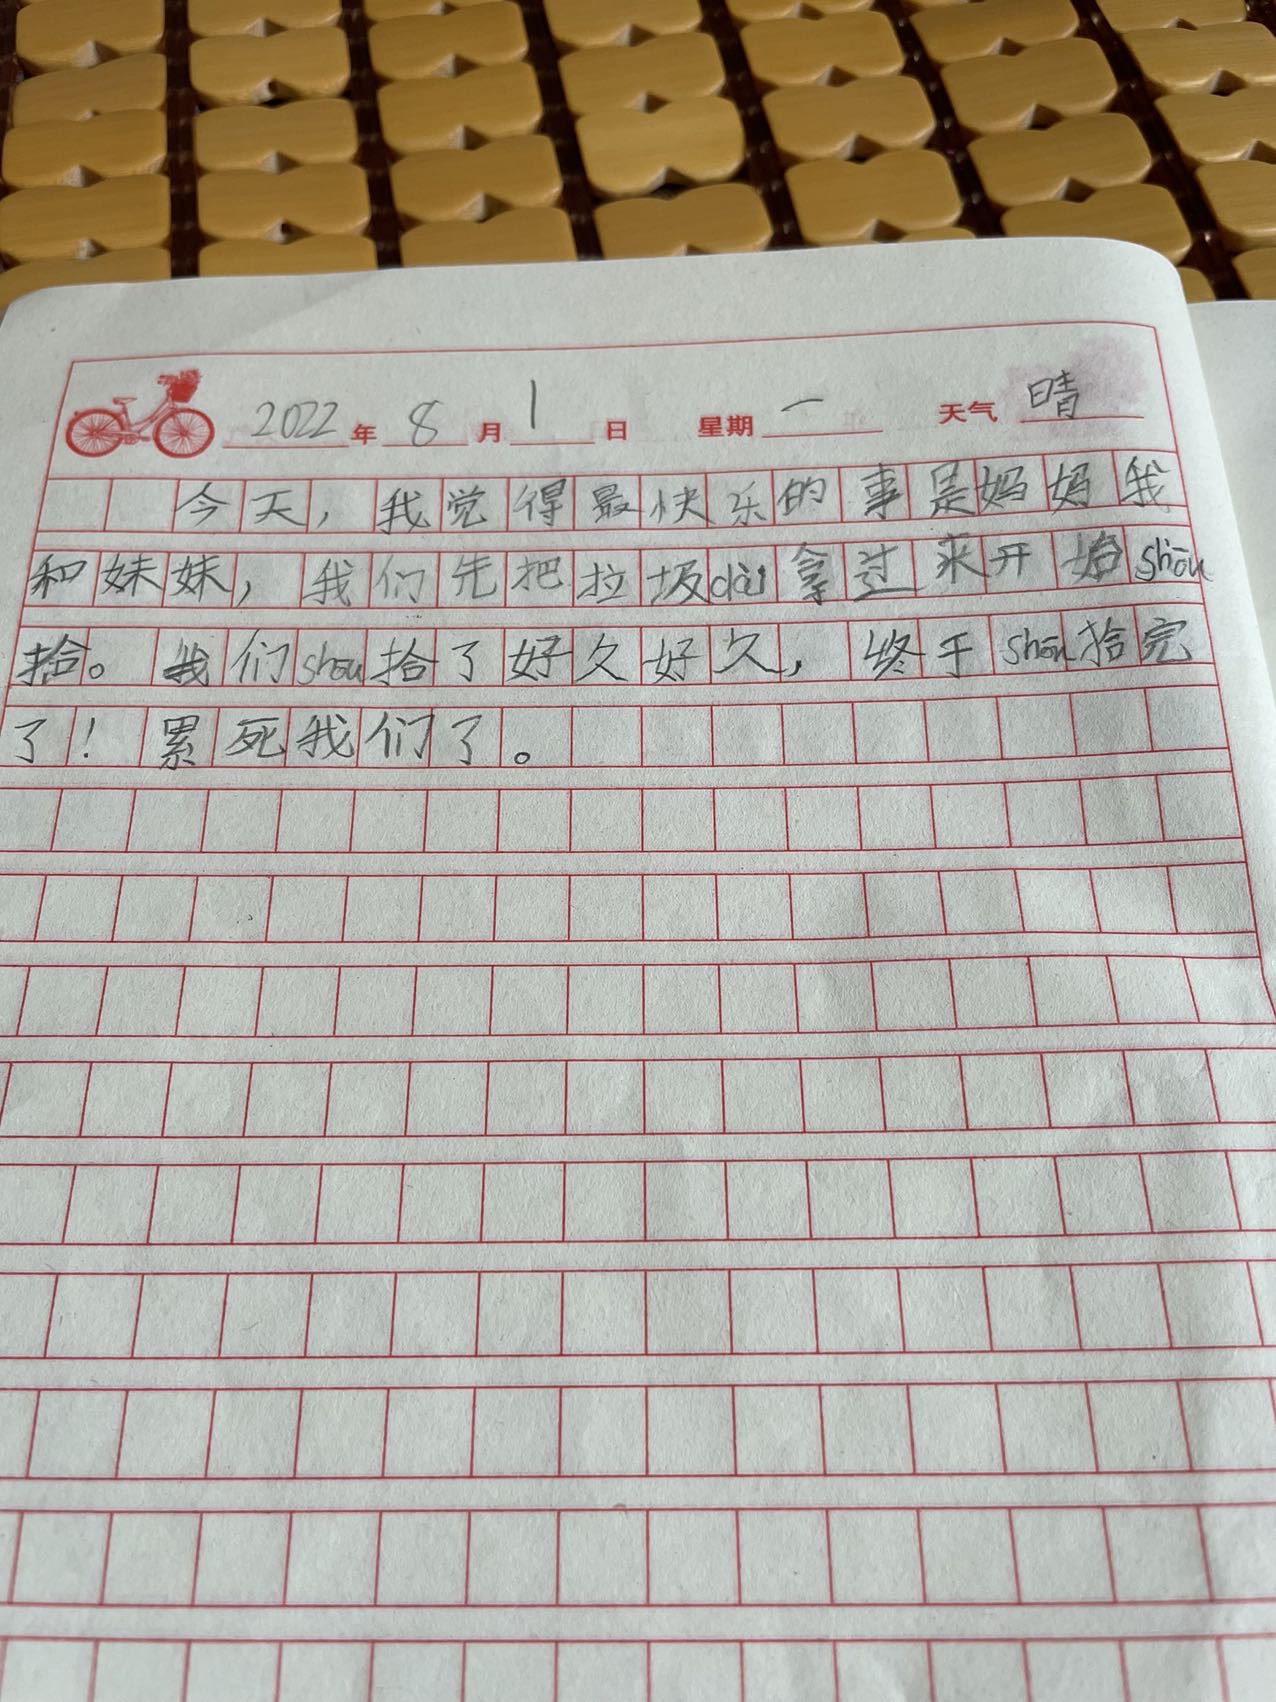 2022年8月1日 星期一 天气晴
今天，我觉得最快乐的事是妈妈我
和妹妹，我们先把垃圾dài拿过来开始shōu
拾。我们shōu拾了好久好久，终于shōu拾完
了！累死我们了。